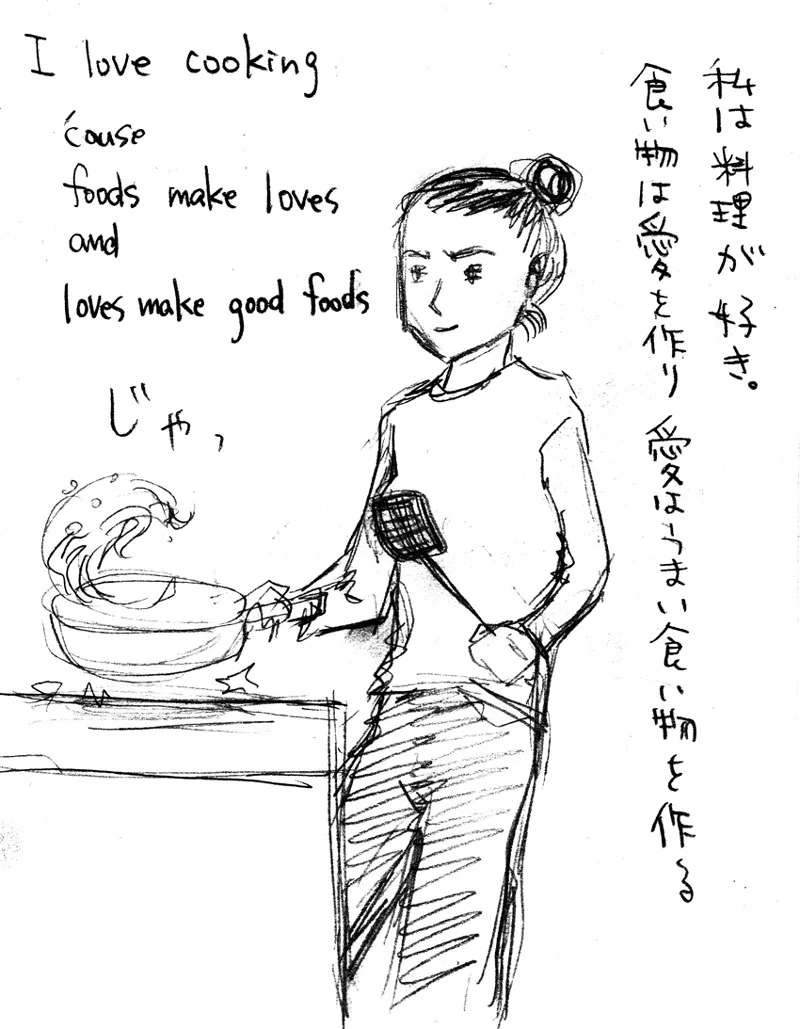 I love cooking
'couse
foods make loves
and
loves make good foods
じゃっ
私は料理が好き。
食い物は愛を作り 愛はうまい食い物を作る